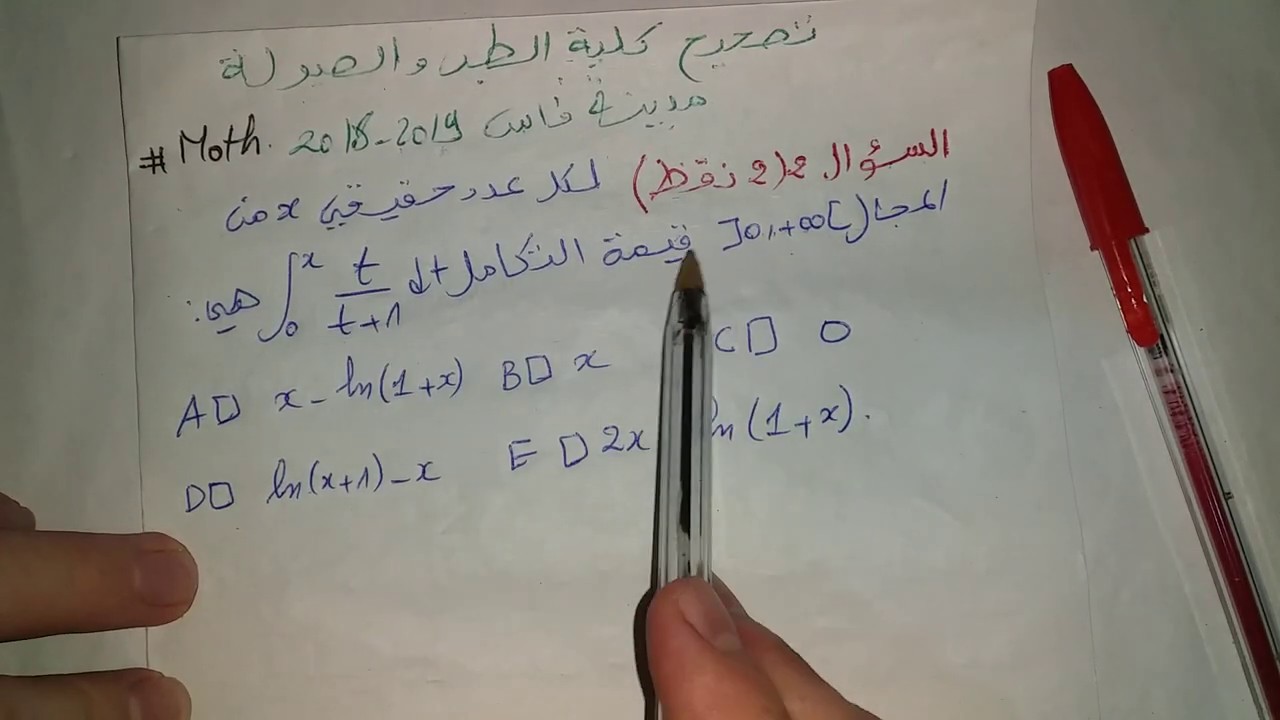 تصحيح كلية الطب والصيدلة
مدينة فاس 2018-2019 Math. #
السؤال 2 (2 نقط) لكل عدد حقيقي x من
المجال ]0,+∞[ قيمة التكامل ∫₀ˣ t/(t+1) dt هي:
A□ x - ln(1+x) B□ x C□ 0
D□ ln(x+1) - x E□ 2x ln(1+x).